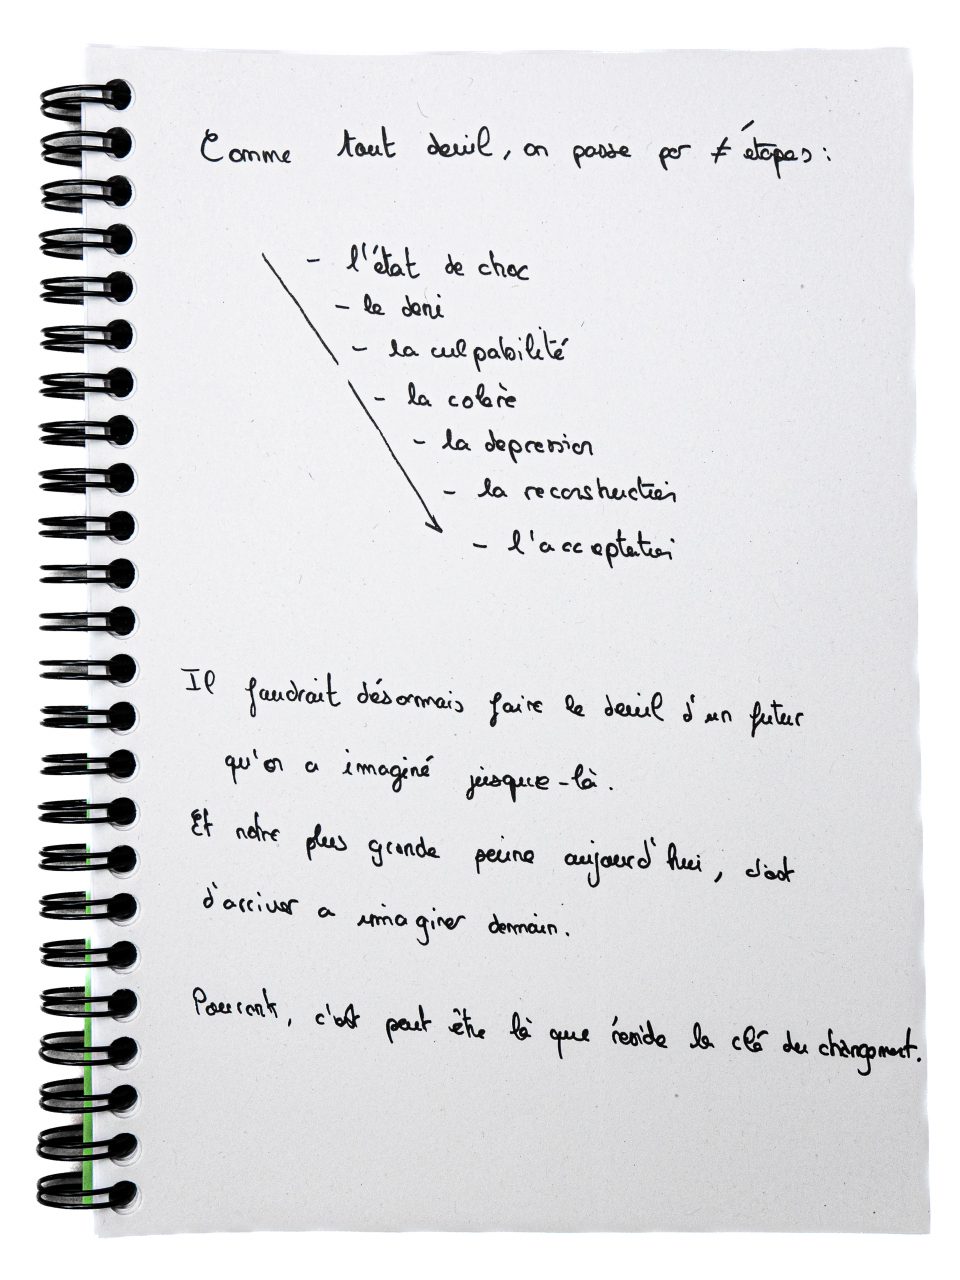 Comme tout deuil, on passe par ≠ étapes :
- l'état de choc
- le deni
- la culpabilité
- la colère
- la depression
- la reconstruction
- l'acceptation
Il faudrait désormais faire le deuil d'un futur
qu'on a imaginé jusque-là.
Et notre plus grande peine aujourd'hui, c'est
d'arriver a imaginer demain.
Pourtant, c'est peut être là que réside la clé du changement.